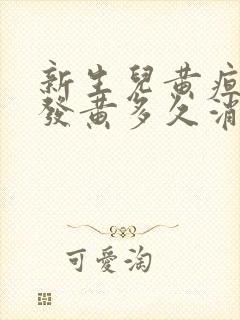 新生兒黄疸
發黄多久消
可愛淘